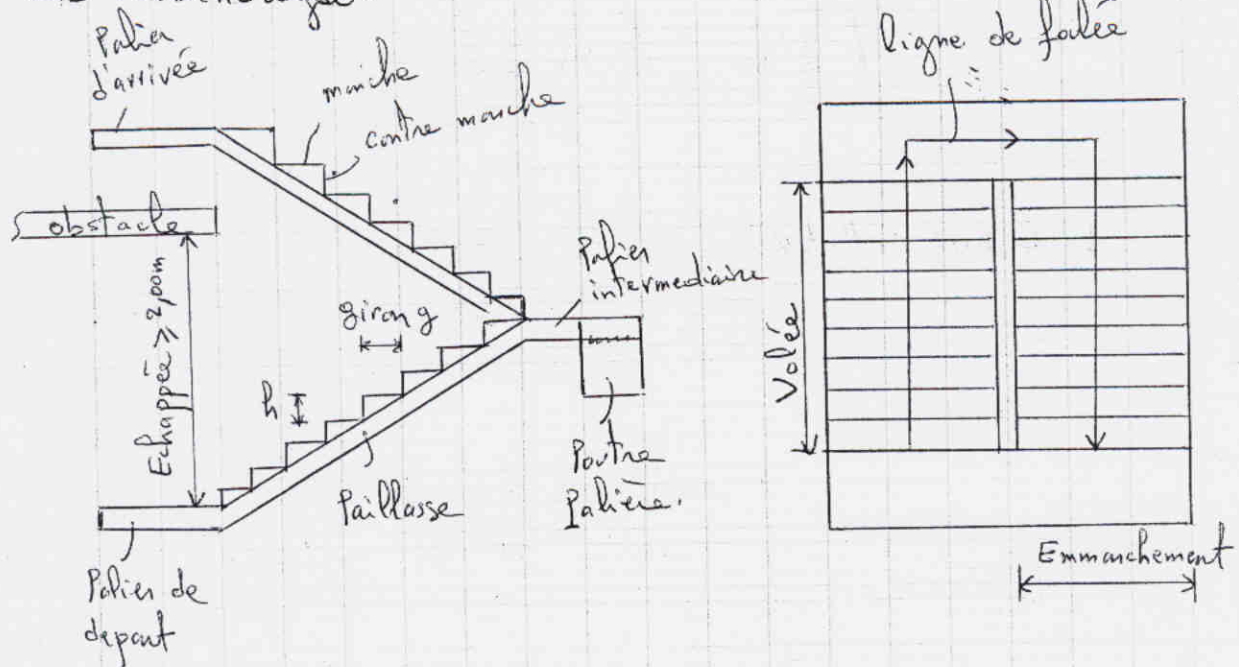 Palier
d'arrivée
marche
contre marche
obstacle
Echappée ≥ 2,00m
giron g
h
Paillasse
Palier
intermediaire
Poutre
Palière.
Palier de
depart
ligne de foulée
Volée
Emmarchement